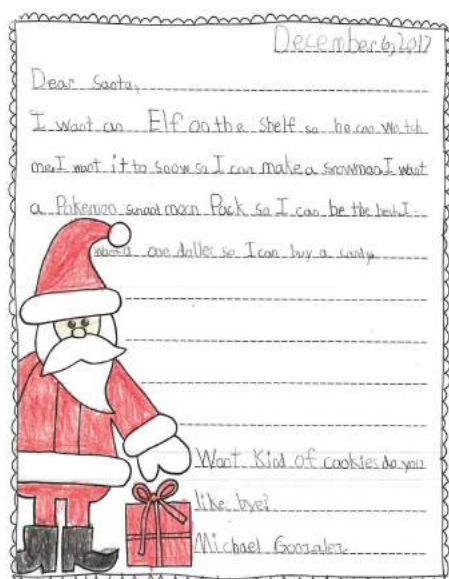 December 6, 2017
Dear Santa,
I want an Elf on the Shelf so he can Watch
me. I want it to snow so I can make a snowman. I want
a Pokemon sun and moon Pack so I can be the best. I
want a one doller so I can buy a candy.
Want Kind of cookies do you
like. bye?
Michael Gonzalez